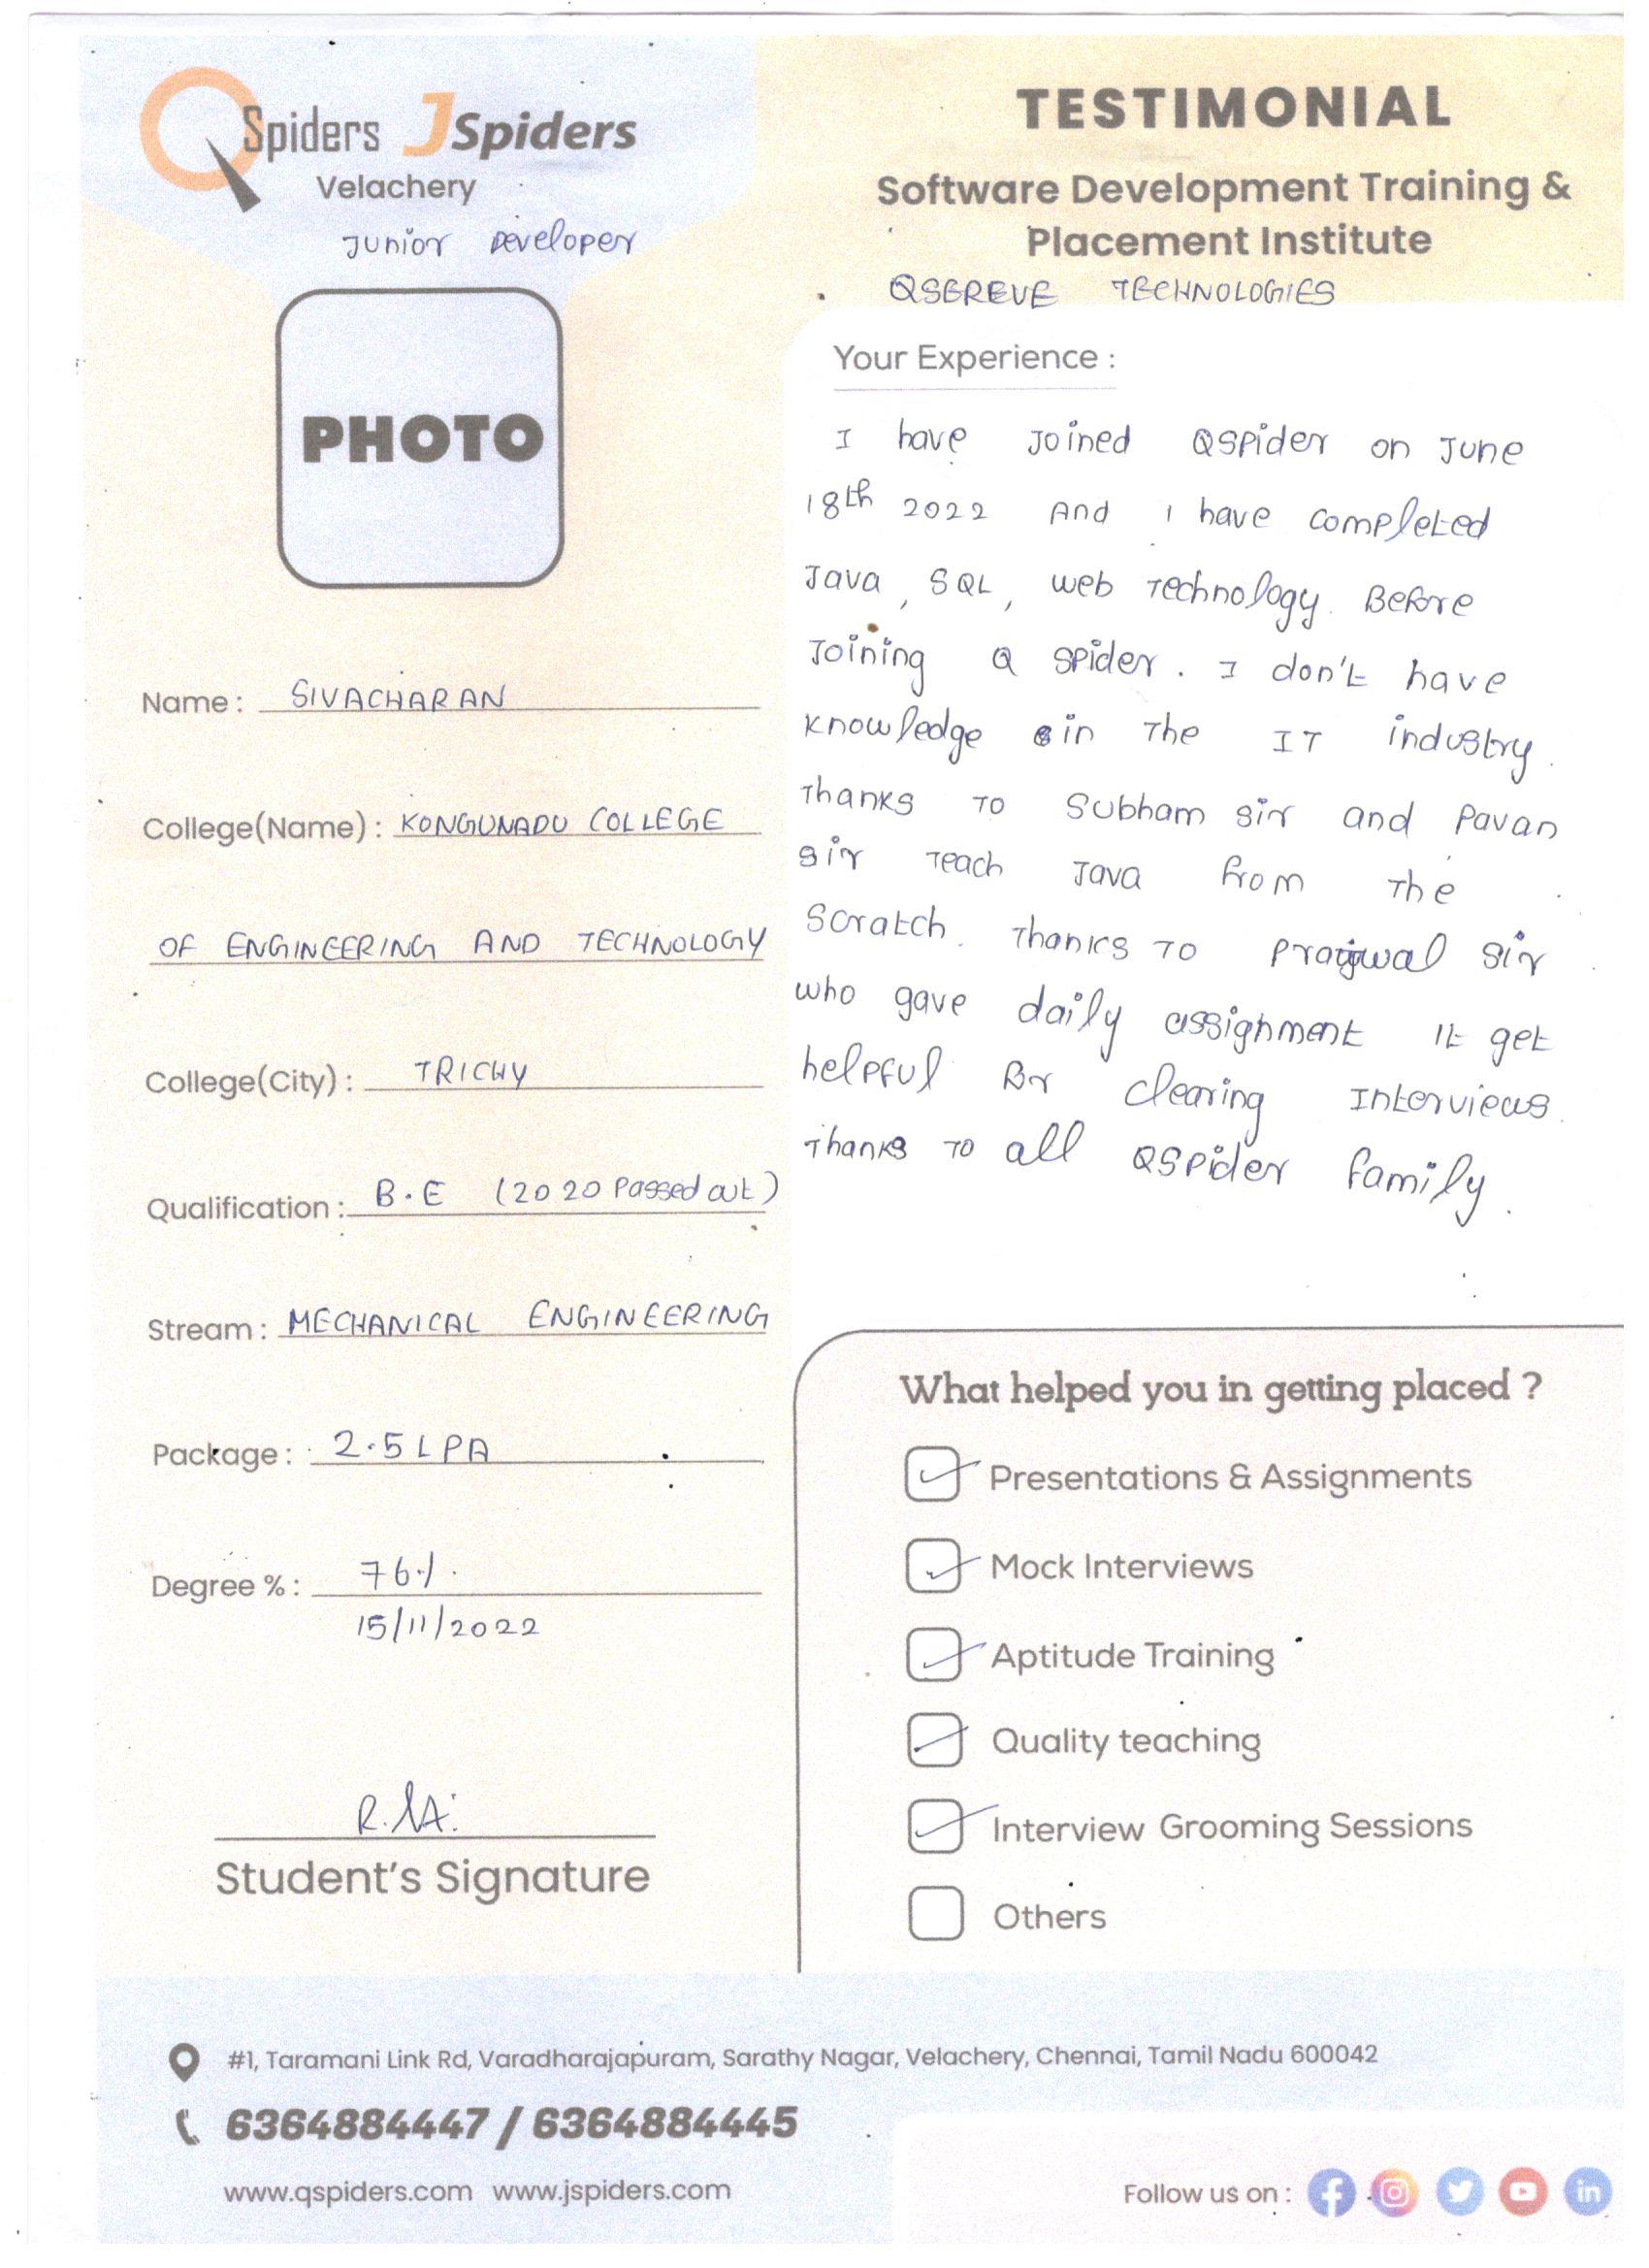 QSpiders JSpiders
Velachery
Junior Developer
PHOTO
Name : SIVACHARAN
College(Name) : KONGUNADU COLLEGE
OF ENGINEERING AND TECHNOLOGY
College(City) : TRICHY
Qualification : B.E (2020 Passed out)
Stream : MECHANICAL ENGINEERING
Package : 2.5 LPA
Degree % : 76%.
15/11/2022
Student's Signature
TESTIMONIAL
Software Development Training &
Placement Institute
QSEREVE TECHNOLOGIES
Your Experience :
I have Joined QSpider on June
18th 2022 And I have completed
Java, SQL, web Technology. Before
Joining Q spider. I don't have
knowledge in The IT industry.
Thanks To Subham sir and Pavan
sir Teach Java from The
Scratch. Thanks To Prajwal sir
who gave daily assignment It get
helpful for clearing Interviews.
Thanks To all QSpider family.
What helped you in getting placed ?
Presentations & Assignments
Mock Interviews
Aptitude Training
Quality teaching
Interview Grooming Sessions
Others
#1, Taramani Link Rd, Varadharajapuram, Sarathy Nagar, Velachery, Chennai, Tamil Nadu 600042
6364884447 / 6364884445
www.qspiders.com www.jspiders.com
Follow us on :